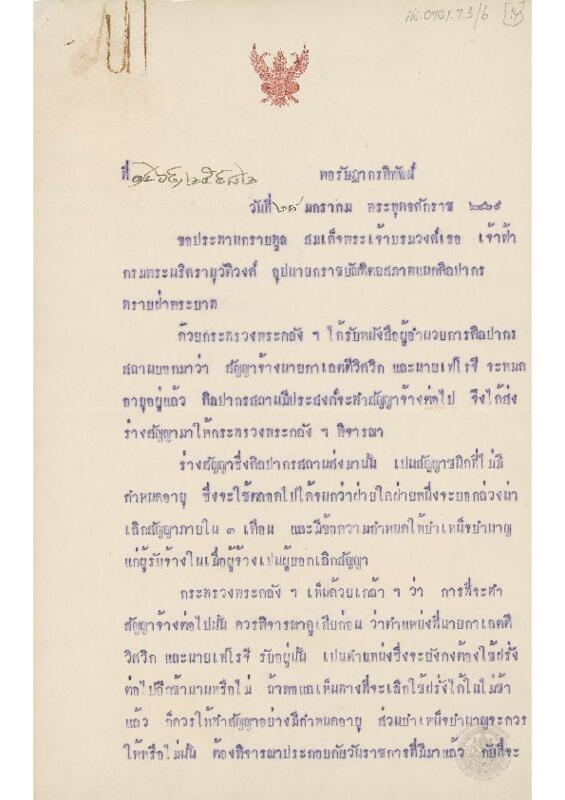 ศธ.0701.7.3/6
ที่ หอรัษฎากรพิพัฒน์
วันที่ ๒๘ มกราคม พระพุทธศักราช ๒๔๖๙
ขอประทานกราบทูล สมเด็จพระเจ้าบรมวงศ์เธอ เจ้าฟ้า
กรมพระนริศรานุวัดิวงศ์ อุปนายกราชบัณฑิตยสภาแผนกศิลปากร
ทราบฝ่าพระบาท
ด้วยกระทรวงพระคลัง ฯ ได้รับหนังสือผู้อำนวยการศิลปากร
สถานบอกมาว่า สัญญาจ้างนายกาเลตตีวิศวิก และนายเฟโรจี จะหมด
อายุอยู่แล้ว ศิลปากรสถานมีประสงค์จะทำสัญญาจ้างต่อไป จึงได้ส่ง
ร่างสัญญามาให้กระทรวงพระคลัง ฯ พิจารณา
ร่างสัญญาซึ่งศิลปากรสถานส่งมานั้น เปนสัญญาชนิดที่ไม่มี
กำหนดอายุ ซึ่งจะใช้ตลอดไปได้จนกว่าฝ่ายใดฝ่ายหนึ่งจะบอกล่วงน่า
เลิกสัญญาภายใน ๓ เดือน และมีข้อความกำหนดให้บำเหน็จบำนาญ
แก่ผู้รับจ้างในเมื่อผู้จ้างเปนผู้บอกเลิกสัญญา
กระทรวงพระคลัง ฯ เห็นด้วยเกล้า ฯ ว่า การที่จะทำ
สัญญาจ้างต่อไปนั้น ควรพิจารณาดูเสียก่อน ว่าตำแหน่งที่นายกาเลตตี
วิศวิก และนายเฟโรจี รับอยู่นั้น เปนตำแหน่งซึ่งจะยังคงต้องใช้ฝรั่ง
ต่อไปอีกช้านานหรือไม่ ถ้าพอแลเห็นทางที่จะเลิกใช้ฝรั่งได้ในไม่ช้า
แล้ว ก็ควรให้ทำสัญญาอย่างมีกำหนดอายุ ส่วนบำเหน็จบำนาญจะควร
ให้หรือไม่นั้น ต้องพิจารณาประกอบกับวันราชการที่มีมาแล้ว กับที่จะ